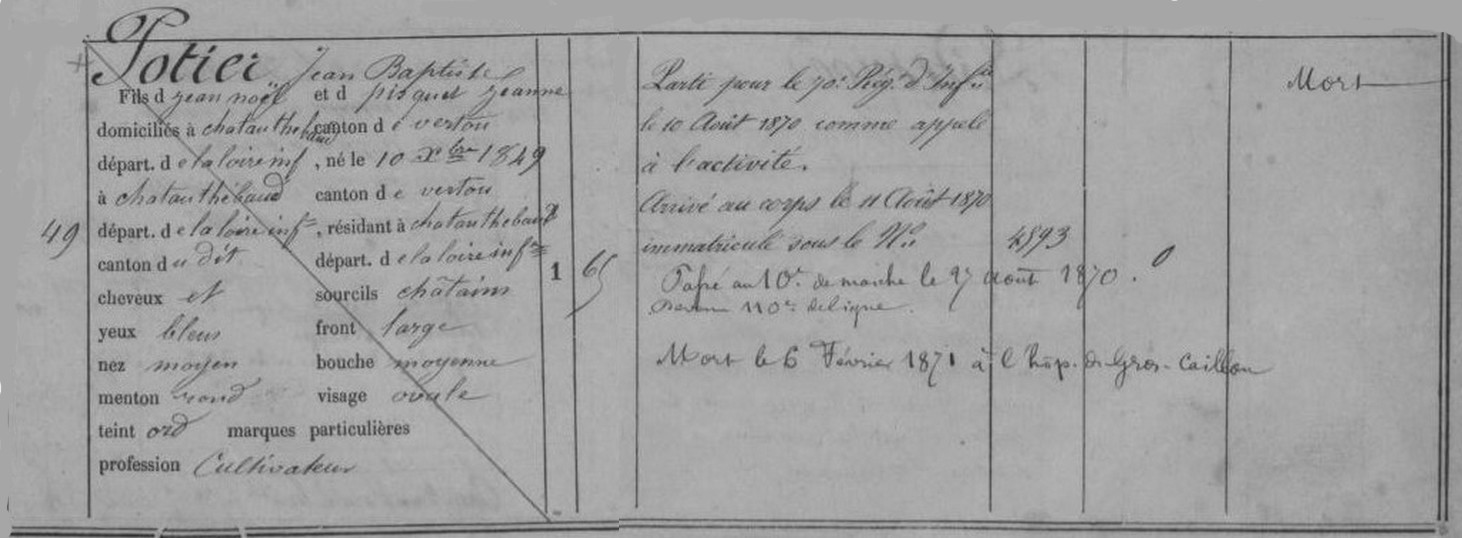 Potier, Jean Baptiste
Fils d jean noël et d pisquet jeanne
domiciliés à chatauthebaud canton d e vertou
départ. d e la loire inf, né le 10 Xbre 1849
à chatauthébaud canton d e vertou
49
départ. d e la loire infre, résidant à chatauthebaud
canton d u dit départ. d e la loire infre
cheveux et sourcils châtains
yeux bleus front large
nez moyen bouche moyenne
menton rond visage ovale
teint ord marques particulières
profession Cultivateur
1
65
Parti pour le 70e Rég.t d'Infie
le 10 Août 1870 comme appelé
à l'activité.
Arrivé au corps le 11 Août 1870
immatriculé sous le No 4593
Passé au 10e de marche le 27 août 1870.
Devenu 110e de ligne.
Mort le 6 Février 1871 à l'hôp. du Gros-Caillou
Mort